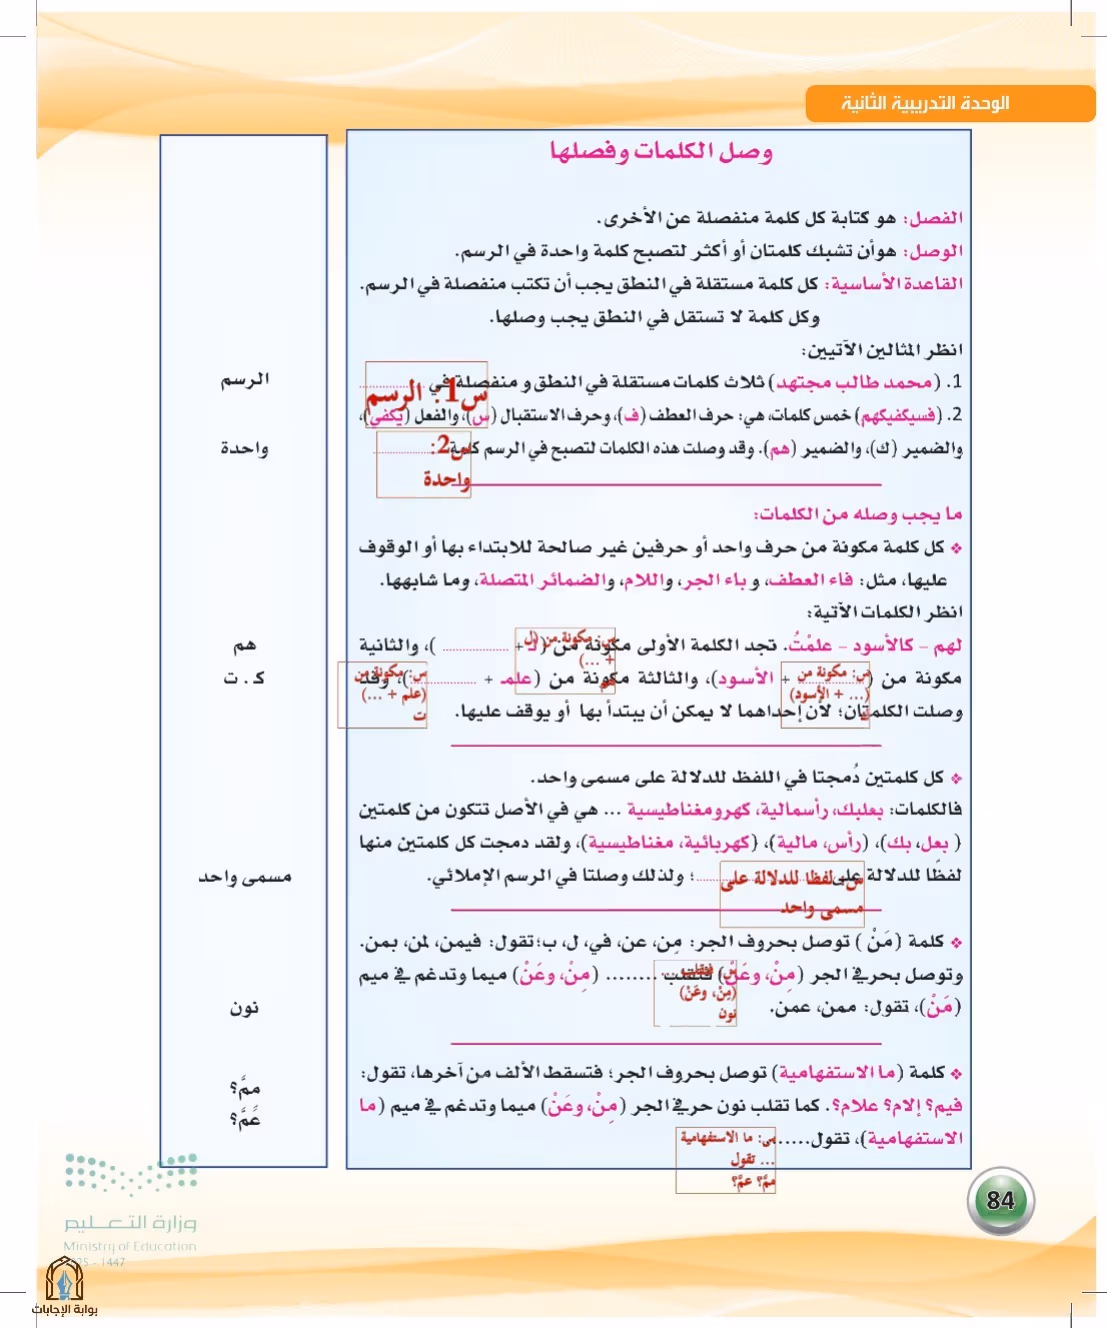 الوحدة التدريبية الثانية
وصل الكلمات وفصلها
الفصل: هو كتابة كل كلمة منفصلة عن الأخرى.
الوصل: هوأن تشبك كلمتان أو أكثر لتصبح كلمة واحدة في الرسم.
القاعدة الأساسية: كل كلمة مستقلة في النطق يجب أن تكتب منفصلة في الرسم.
وكل كلمة لا تستقل في النطق يجب وصلها.
انظر المثالين الآتيين:
1. (محمد طالب مجتهد) ثلاث كلمات مستقلة في النطق و منفصلة في ..........
س1: الرسم
الرسم
2. (فسيكفيكهم) خمس كلمات، هي: حرف العطف (ف)، وحرف الاستقبال (س)، والفعل (يكفي)،
والضمير (ك)، والضمير (هم). وقد وصلت هذه الكلمات لتصبح في الرسم كلمة ..........
س2:
واحدة
واحدة
ما يجب وصله من الكلمات:
❖ كل كلمة مكونة من حرف واحد أو حرفين غير صالحة للابتداء بها أو الوقوف
عليها، مثل: فاء العطف، و باء الجر، واللام، والضمائر المتصلة، وما شابهها.
انظر الكلمات الآتية:
لهم - كالأسود - علمْتُ. تجد الكلمة الأولى مكونة من (لـ + .......... )، والثانية
س: مكونة من (ل
+ ...)
هم
هم
مكونة من (.......... + الأسود)، والثالثة مكونة من (علمـ + ..........)، وقد
س: مكونة من
(... + الأسود)
س: مكونة من
(علم + ...)
ت
كـ . ت
وصلت الكلمتان؛ لأن إحداهما لا يمكن أن يبتدأ بها أو يوقف عليها.
❖ كل كلمتين دُمجتا في اللفظ للدلالة على مسمى واحد.
فالكلمات: بعلبك، رأسمالية، كهرومغناطيسية ... هي في الأصل تتكون من كلمتين
( بعل، بك)، (رأس، مالية)، (كهربائية، مغناطيسية)، ولقد دمجت كل كلمتين منها
لفظًا للدلالة على ..........؛ ولذلك وصلتا في الرسم الإملائي.
س: لفظا للدلالة على
مسمى واحد
مسمى واحد
❖ كلمة (مَنْ ) توصل بحروف الجر: مِن، عن، في، ل، ب؛ تقول: فيمن، لمن، بمن.
وتوصل بحرفي الجر (مِنْ، وعَنْ) فتقلب ......... (مِنْ، وعَنْ) ميما وتدغم في ميم
س: فتقلب ...
(مِنْ، وعَنْ)
نون
(مَنْ)، تقول: ممن، عمن.
نون
❖ كلمة (ما الاستفهامية) توصل بحروف الجر؛ فتسقط الألف من آخرها، تقول:
فيم؟ إلام؟ علام؟. كما تقلب نون حرفي الجر (مِنْ، وعَنْ) ميما وتدغم في ميم (ما
الاستفهامية)، تقول.....
س: ما الاستفهامية
... تقول
ممَّ؟ عمَّ؟
ممَّ؟
عَمَّ؟
وزارة التعليم
Ministry of Education
- 1447
84
بوابة الإجابات